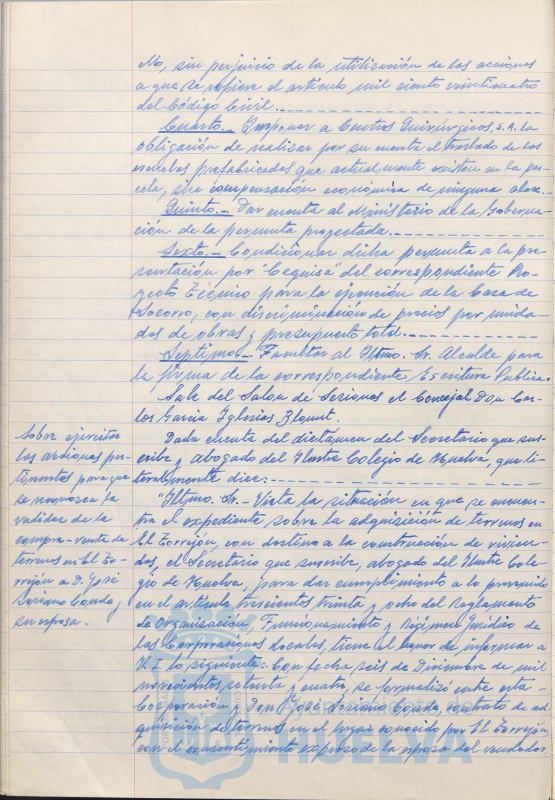 Mo, sin perjuicio de la utilización de las acciones
a que se refiere el artículo mil ciento veinticuatro
del Código Civil.
Cuarto.- Imponer a Centros Quirúrgicos, S.A. la
obligación de realizar por su cuenta el traslado de las
escuelas prefabricadas que actualmente existen en la par-
cela, sin compensación económica de ninguna clase.
Quinto.- Dar cuenta al Ministerio de la Goberna-
ción de la permuta proyectada.
Sexto.- Condicionar dicha permuta a la pre-
sentación por "Cequisa" del correspondiente Pro-
yecto Técnico para la ejecución de la Casa de
Socorro, con discriminación de precios por unida-
des de obras y presupuesto total.
Septimo.- Facultar al Iltmo. Sr. Alcalde para
la firma de la correspondiente Escritura Publica.
Sale del Salon de Sesiones el Concejal Don Car-
los Garcia Iglesias Blount.
Dada cuenta del dictamen del Secretario que sus-
cribe y abogado del Ilustre Colegio de Huelva, que li-
teralmente dice:
"Iltmo. Sr.- Vista la situación en que se encuen-
tra el expediente sobre la adquisición de terrenos en
El Torrejón, con destino a la construcción de vivien-
das, el Secretario que suscribe, abogado del Ilustre Cole-
gio de Huelva, para dar cumplimiento a lo prevenido
en el artículo trescientos treinta y ocho del Reglamento
de Organización, Funcionamiento y Régimen Jurídico de
las Corporaciones Locales, tiene el honor de informar a
V.I. lo siguiente: Con fecha seis de Diciembre de mil
novecientos setenta y cuatro, se formalizó entre esta
Corporación y Don José Soriano Conde, contrato de ad-
quisición de terrenos en el lugar conocido por El Torrejón,
con el consentimiento expreso de la esposa del vendedor
Sobre ejercitar
las acciones per-
tinentes para que
se reconozca la
validez de la
compra-venta de
terrenos en El To-
rrejón a D. José
Soriano Conde y
su esposa.
HUELVA